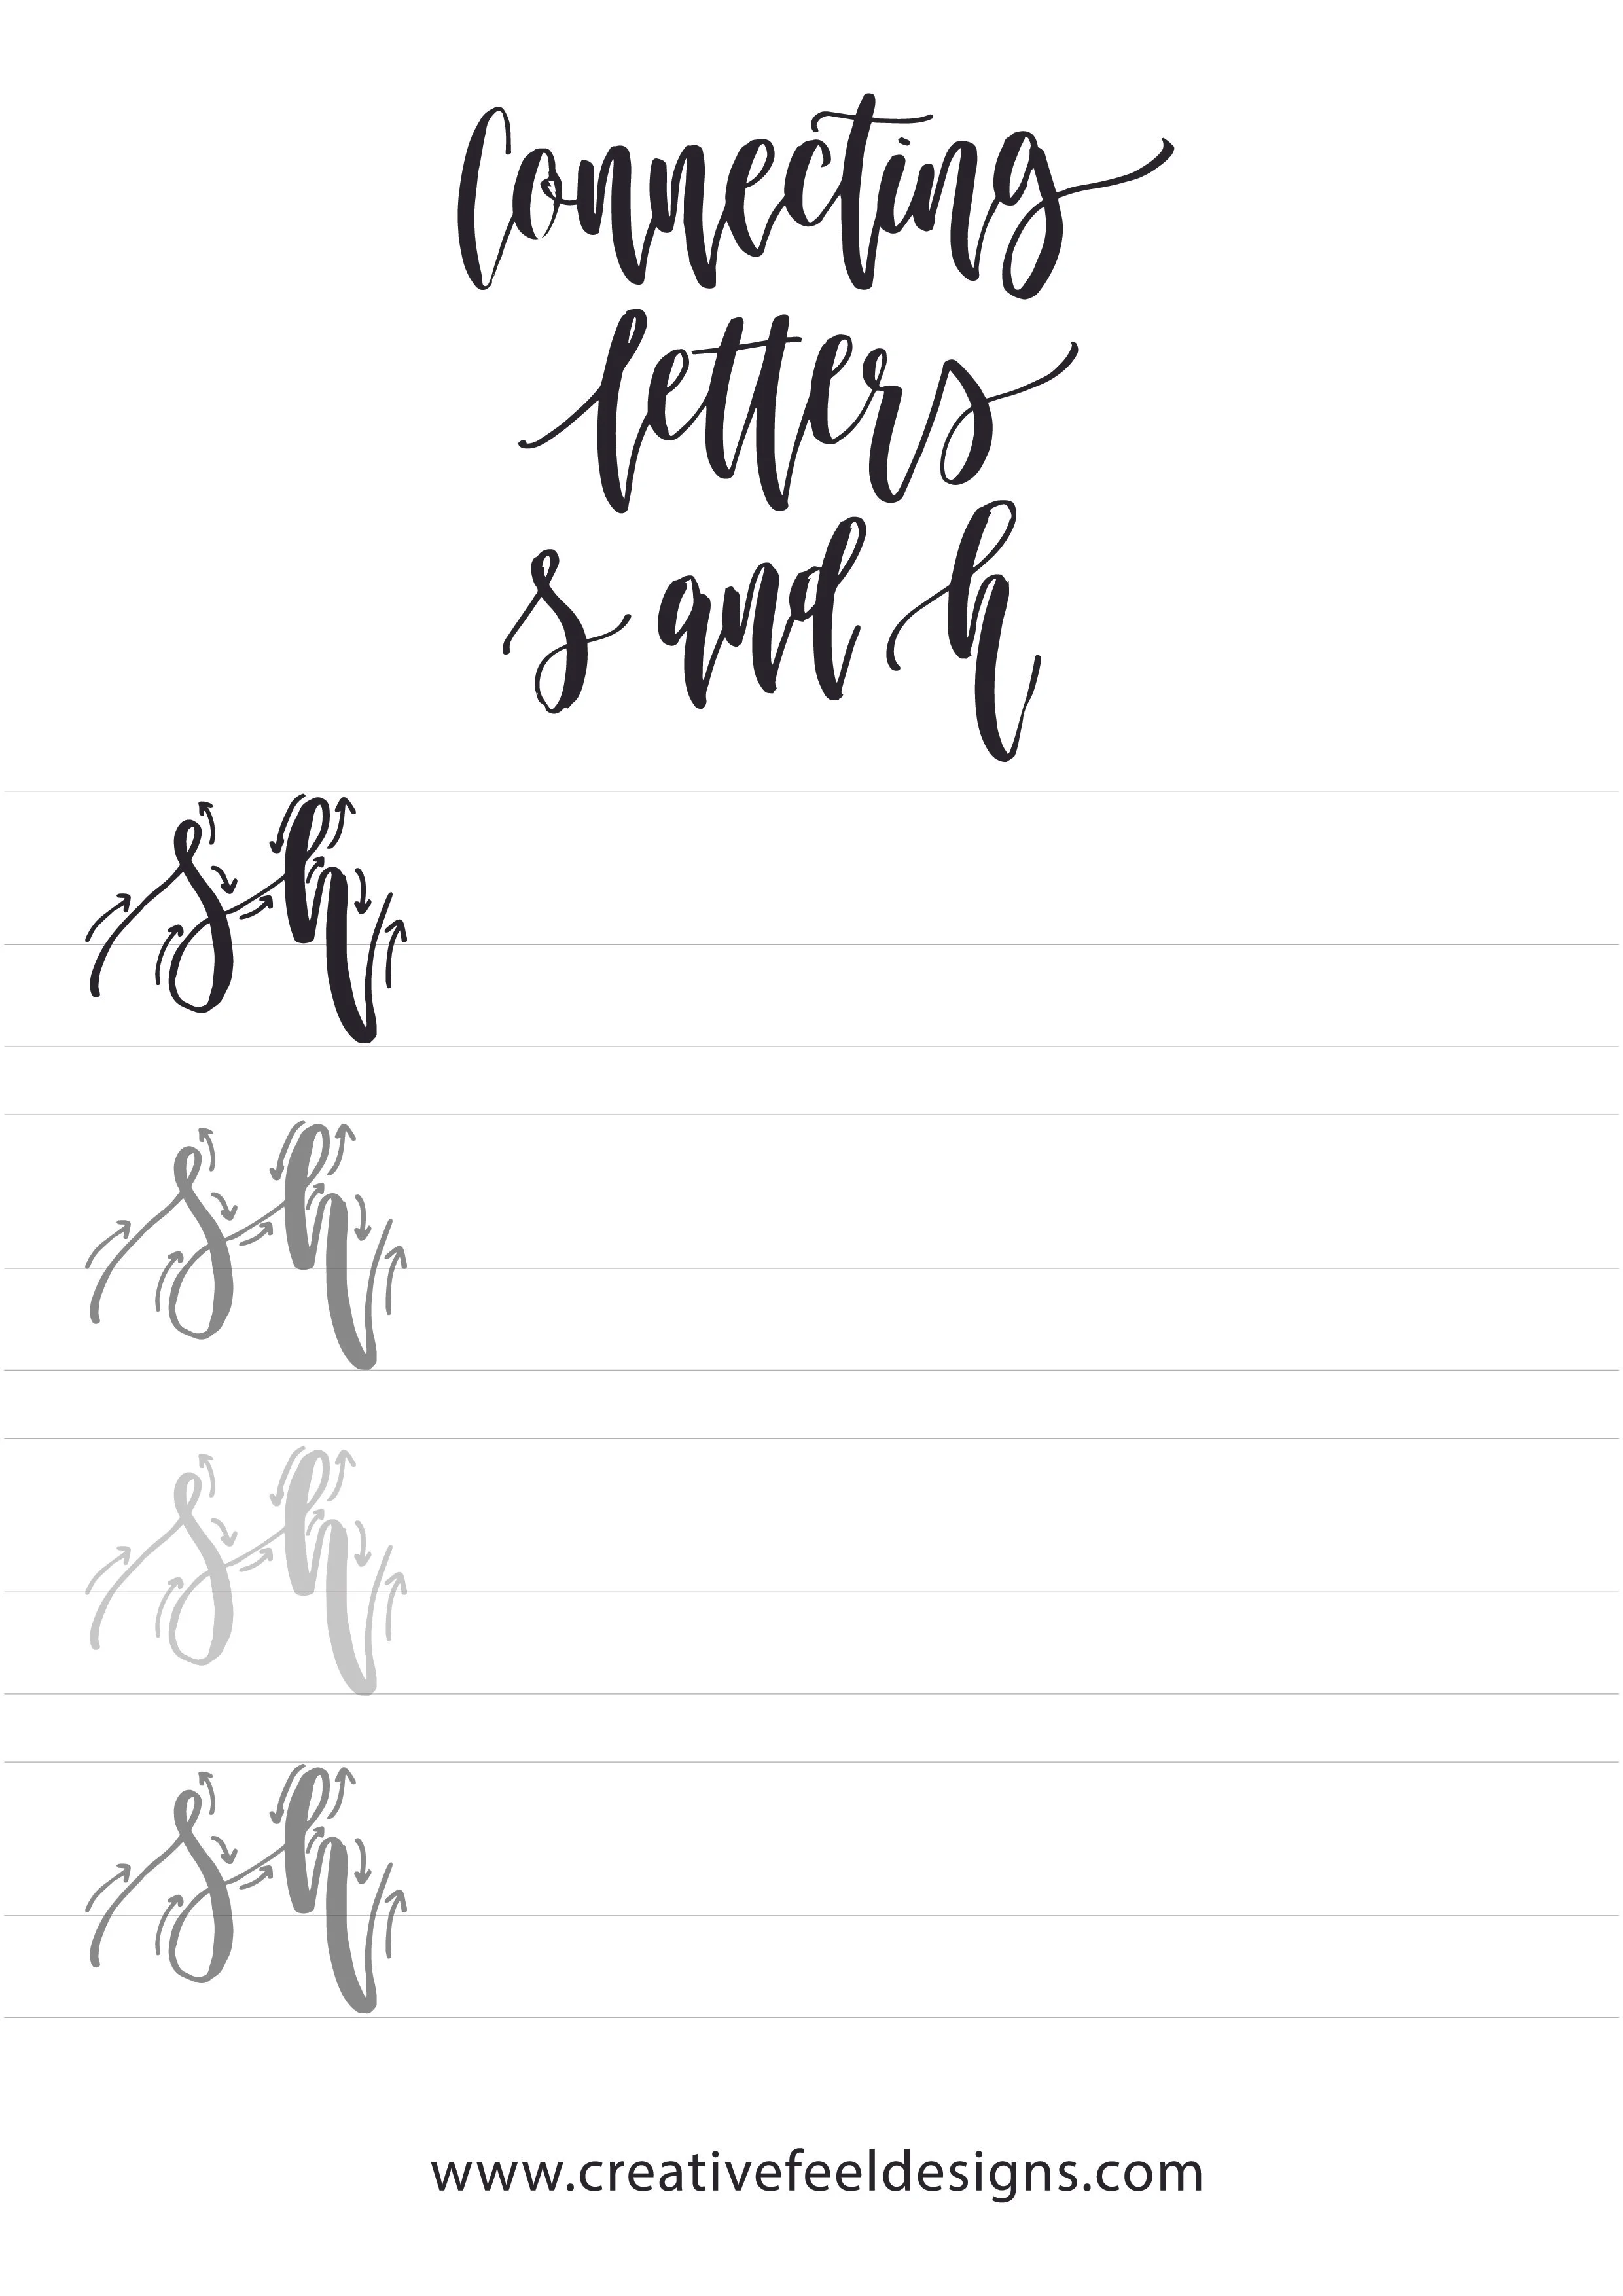 Connecting
letters
s and h
sh
sh
sh
sh
www.creativefeeldesigns.com